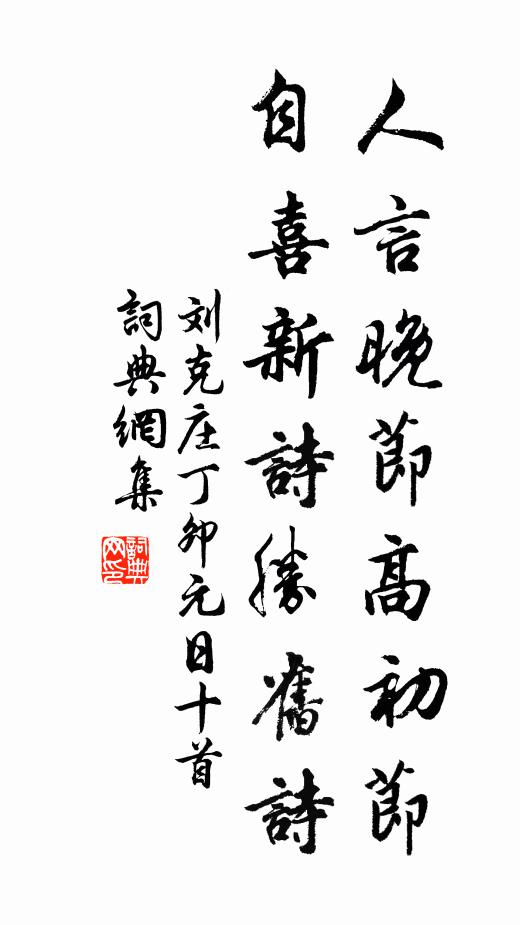 人言晚節高初節
自喜新詩勝舊詩
刘克庄丁卯元日十首
詞典網集
詞典网印